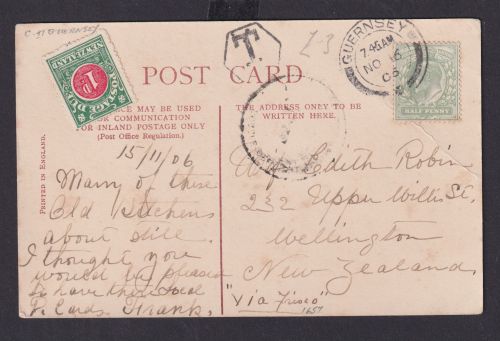 C. 51 GUERNSEY
NEW ZEALAND
1D
POSTAGE DUE
T
Z-3
GUERNSEY
7.45AM
NO 16
06
HALF PENNY
POST CARD
MAY BE USED
FOR COMMUNICATION
FOR INLAND POSTAGE ONLY
(Post Office Regulation.)
THE ADDRESS ONLY TO BE
WRITTEN HERE.
PRINTED IN ENGLAND.
15/11/06
Many of these
Old Kitchens
about still.
I thought you
would be pleased
to have these local
P. Cards. Frank.
Edith Robin
232 Upper Willis St.
Wellington
New Zealand.
"Via Frisco"
1657